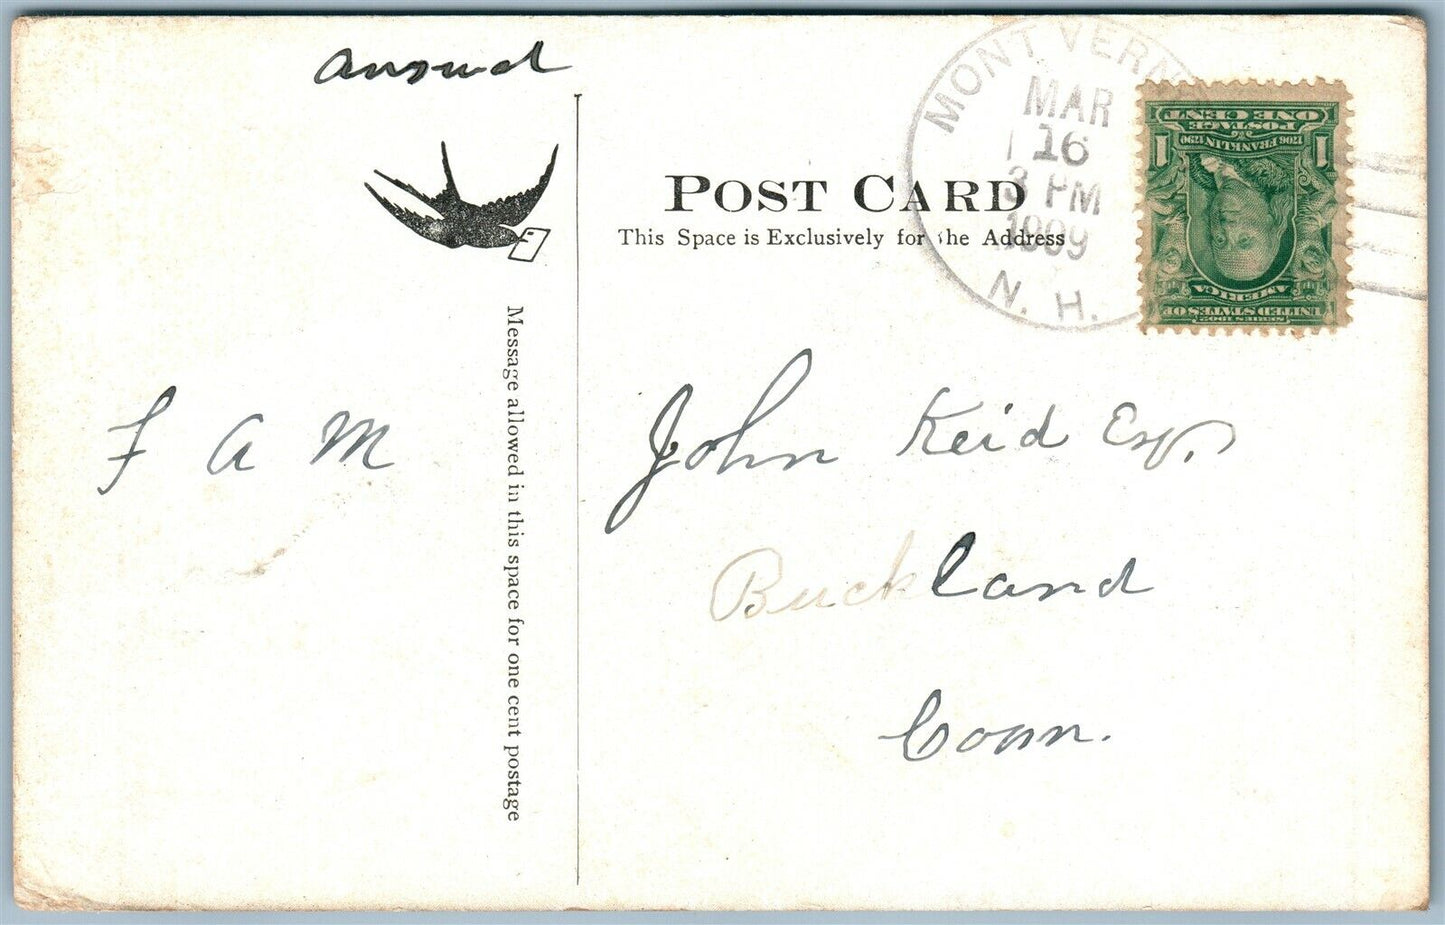 answd
F A M
Message allowed in this space for one cent postage
POST CARD
This Space is Exclusively for the Address
MONT VERN
MAR
16
3 PM
1909
N. H.
POSTAGE
ONE CENT
1706 FRANKLIN 1790
1 1
SERIES 1902
UNITED STATES OF
AMERICA
John Reid Esq.
Buckland
Conn.